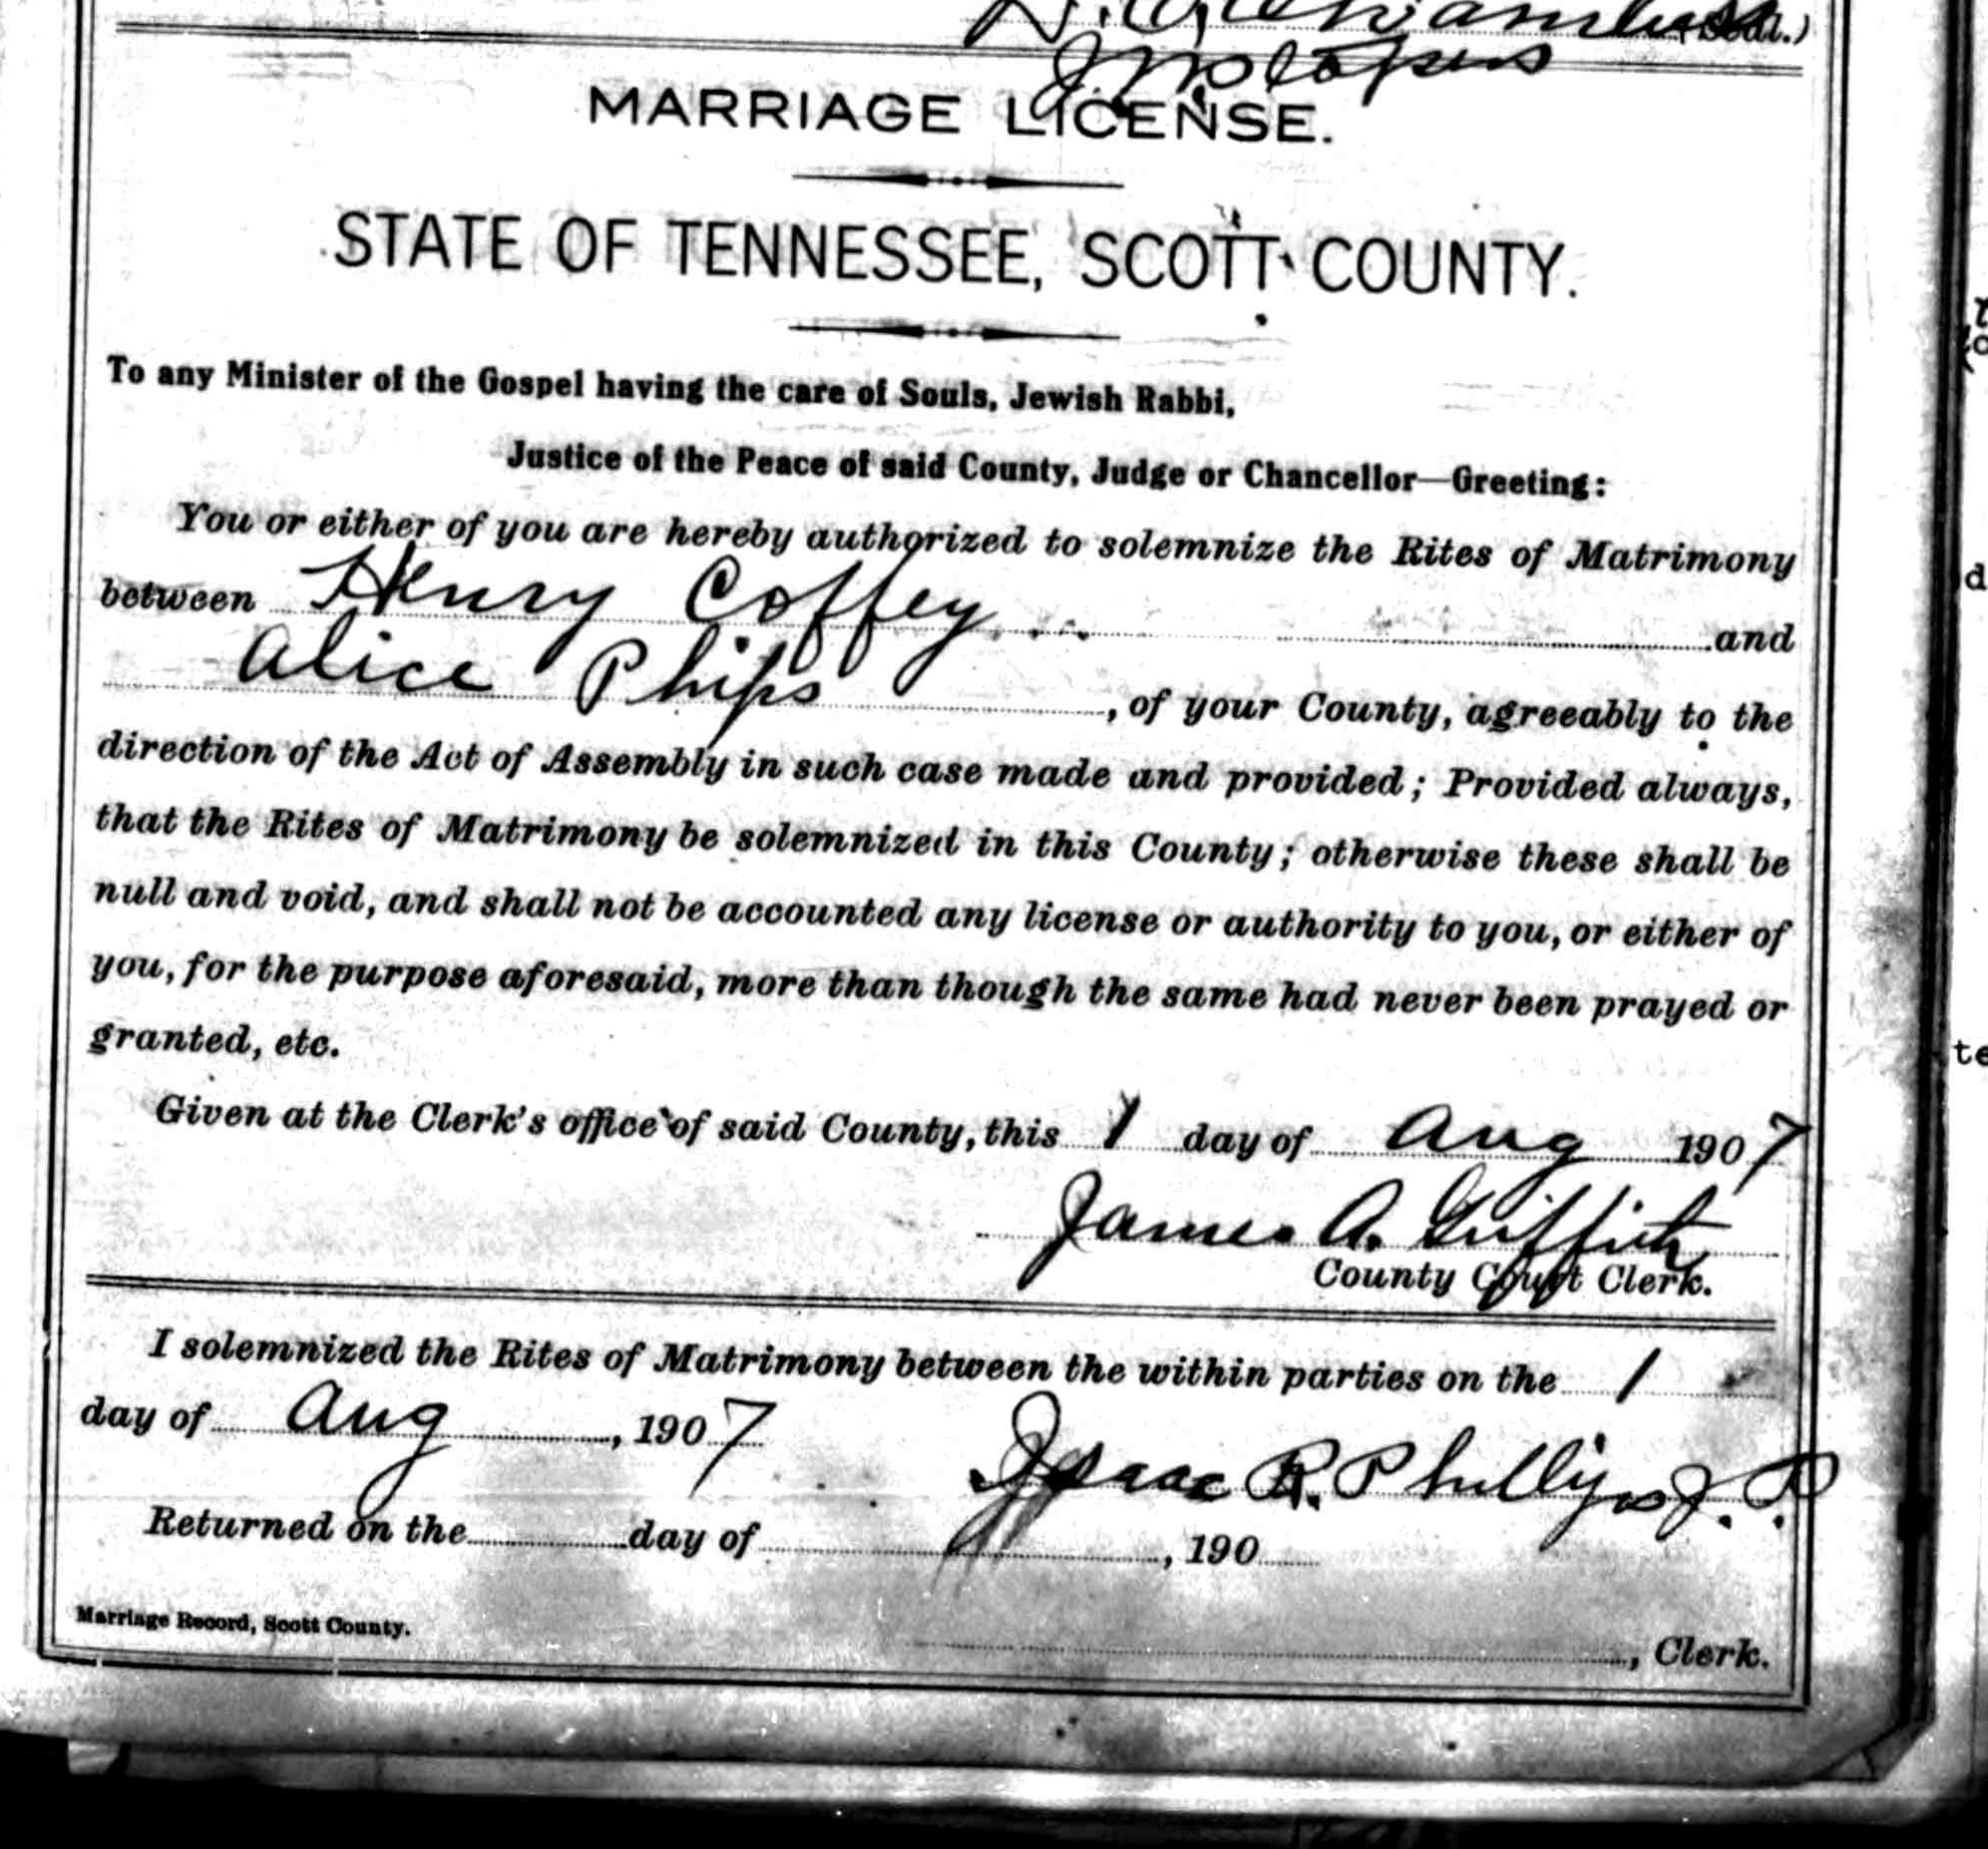 (Seal.)
MARRIAGE LICENSE.
STATE OF TENNESSEE, SCOTT COUNTY.
To any Minister of the Gospel having the care of Souls, Jewish Rabbi,
Justice of the Peace of said County, Judge or Chancellor—Greeting:
You or either of you are hereby authorized to solemnize the Rites of Matrimony
between Henry Coffey and
Alice Phips, of your County, agreeably to the
direction of the Act of Assembly in such case made and provided; Provided always,
that the Rites of Matrimony be solemnized in this County; otherwise these shall be
null and void, and shall not be accounted any license or authority to you, or either of
you, for the purpose aforesaid, more than though the same had never been prayed or
granted, etc.
Given at the Clerk's office of said County, this 1 day of Aug 1907
James A. Griffith
County Court Clerk.
I solemnized the Rites of Matrimony between the within parties on the 1
day of Aug, 1907
Isaac R. Phillips J. P.
Returned on the day of , 190
Marriage Record, Scott County.
, Clerk.